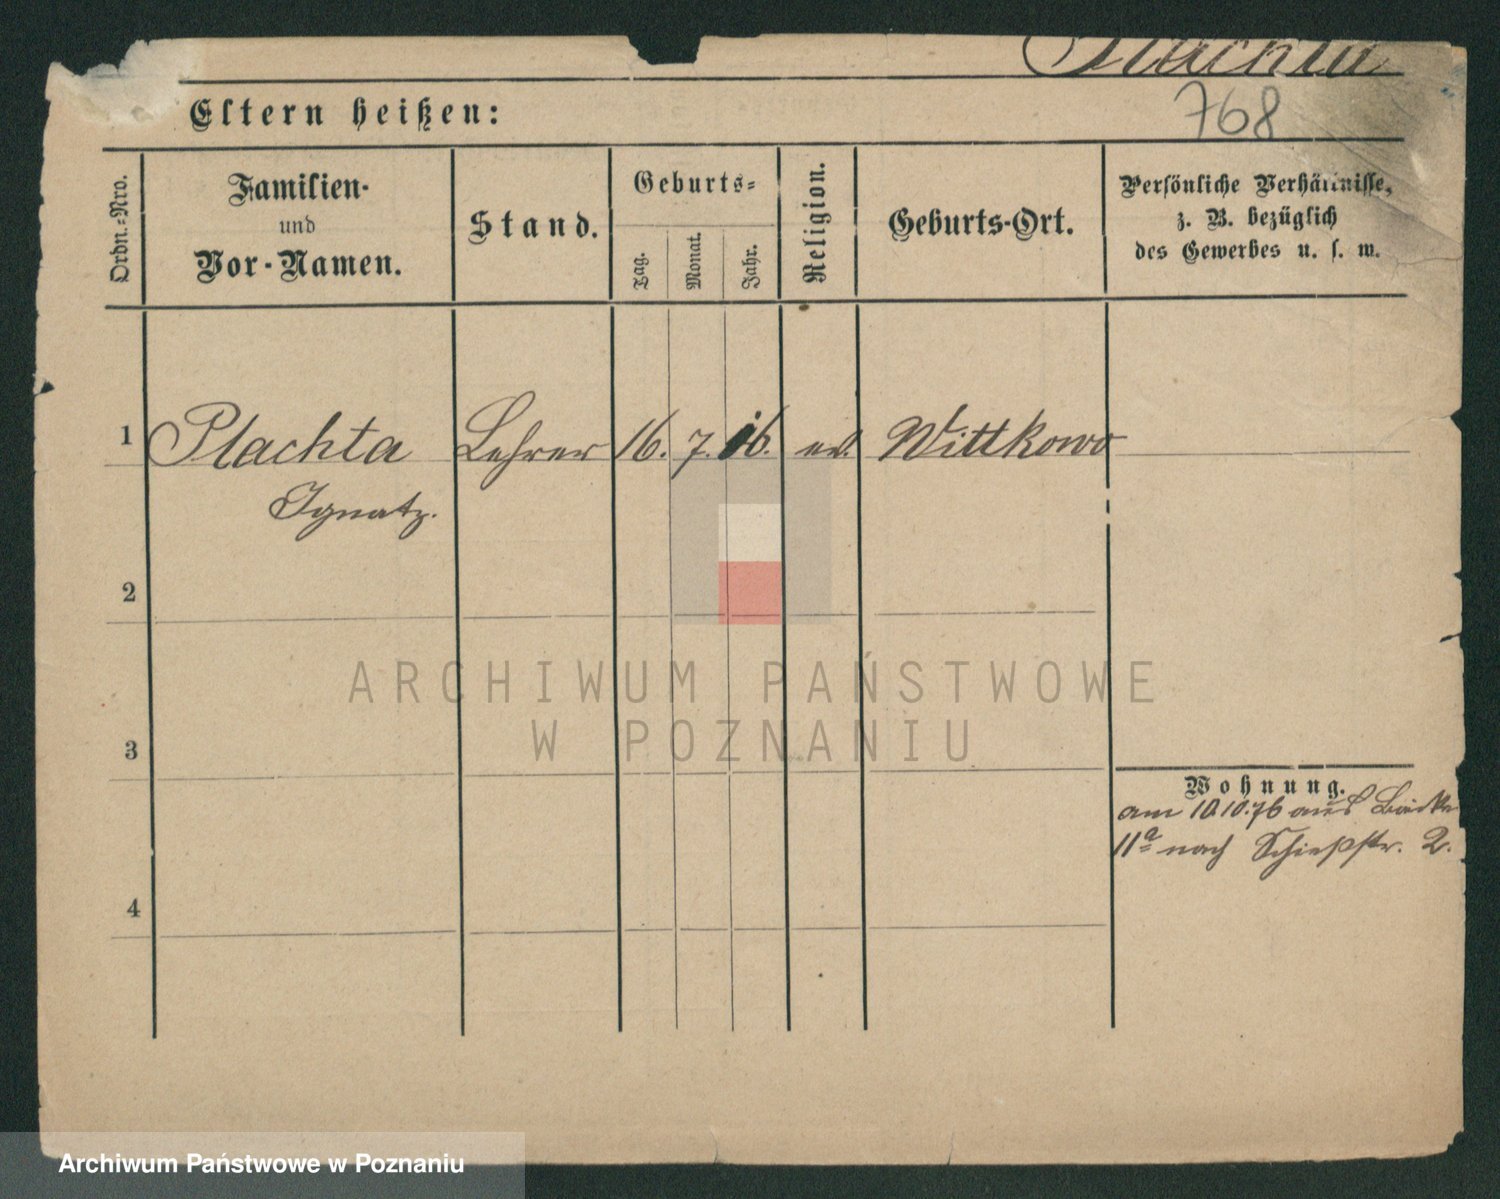 Plachta
768
Eltern heißen:
Ordn.-Nro.
Familien-
und
Vor-Namen.
Stand.
Geburts-
Tag.
Monat.
Jahr.
Religion.
Geburts-Ort.
Persönliche Verhältnisse,
z. B. bezüglich
des Gewerbes u. s. w.
1 Plachta Lehrer 16. 7. 16. ev. Wittkowo
Ignatz.
2
ARCHIWUM PAŃSTWOWE
W POZNANIU
3
Wohnung.
am 10.10.76 aus
11a nach Schießstr. 2.
4
Archiwum Państwowe w Poznaniu